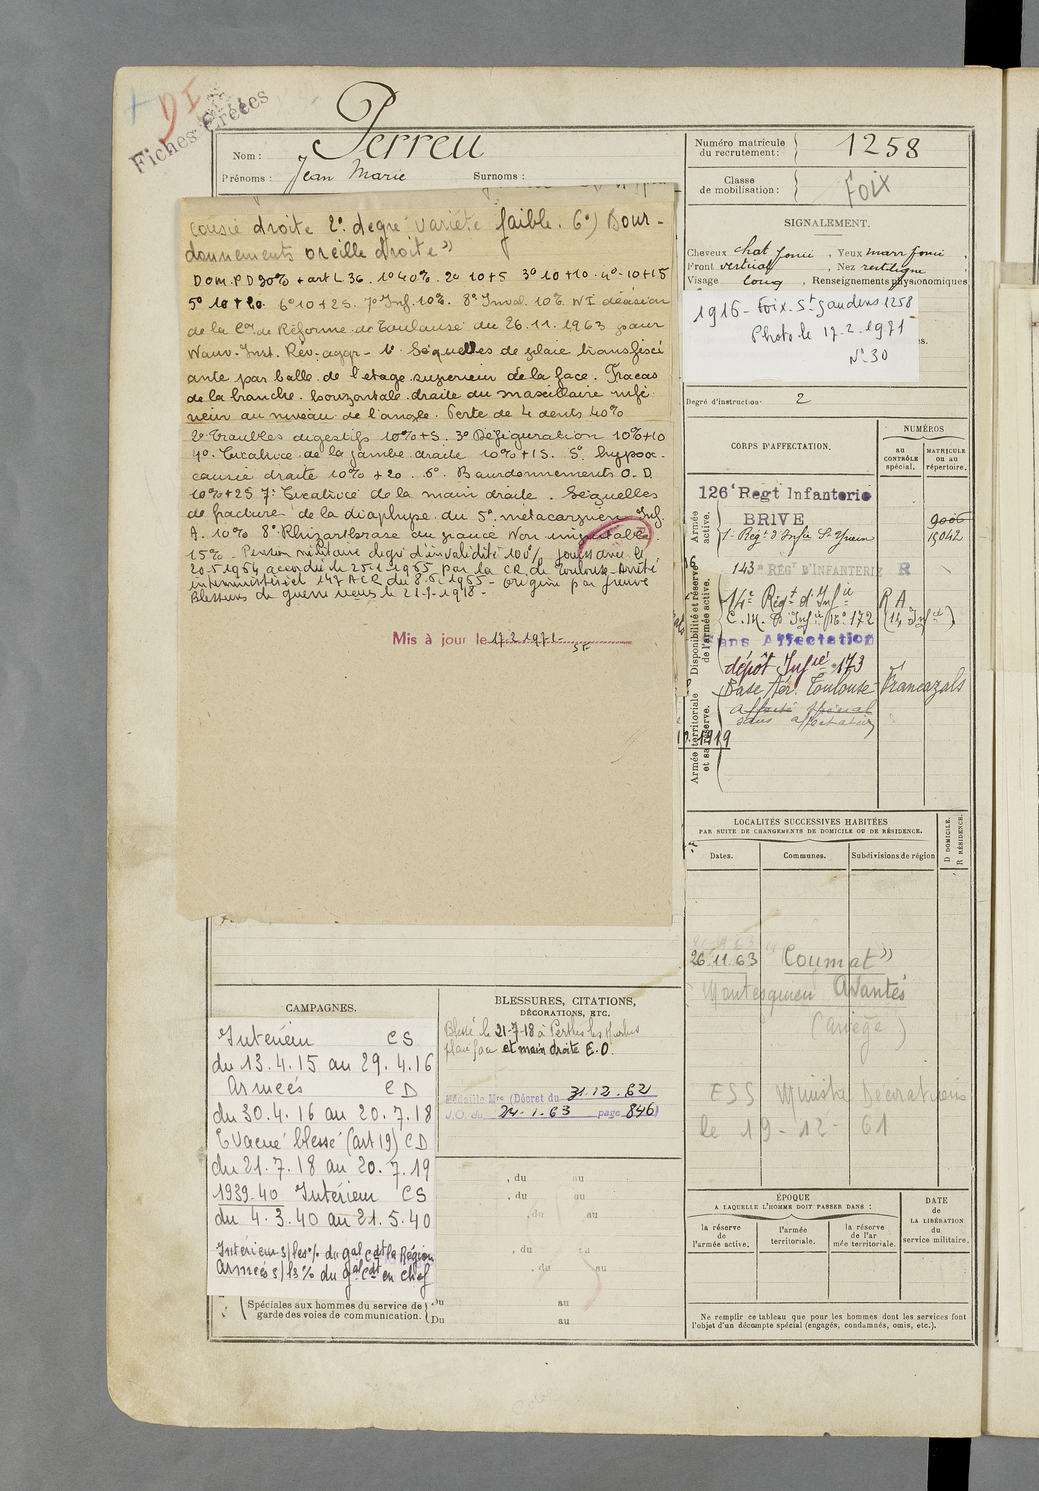 DI
Fiches Créées
Nom : Perreu
Prénoms : Jean Marie Surnoms :
cousie droite 2° degré variété faible. 6°) Bour-
donnements oreille droite"
Dom. P D 90% + art L 36. 1° 40%. 2° 10+5 3° 10+10. 4°- 10+15
5° 10+20. 6° 10+25. 7° Inf. 10%. 8° Inval. 10% NI décision
de la Con de Réforme de Toulouse du 26.11.1963 pour
Nouv. Inst. Rév. aggr - 1° Séquelles de plaie transfixi
ante par balle de l'étage supérieur de la face. Fracas
de la branche horizontale droite du maxillaire infé
rieur au niveau de l'angle. Perte de 4 dents 40%
2° Troubles digestifs 10%+5. 3° Défiguration 10%+10
4°. Cicatrice de la jambe droite 10%+15. 5° hypoa-
cousie droite 10% +20. 6°. Bourdonnements O.D.
10%+25 7° Cicatrice de la main droite. Séquelles
de fracture de la diaphyse du 5° métacarpien Inf
A. 10% 8° Rhizarthrose du pouce Non imputable.
15% - Pension militaire degré d'invalidité 100% jouissance le
20-5-1964 accordée le 25-1-1965 par la CR de Toulouse - Arrêté
interministériel 147 ACR du 8.6.1965 - Origine par preuve
Blessures de guerre reçues le 21-7-1918 -
Mis à jour le 17.2.1971
Numéro matricule
du recrutement : 1258
Classe
de mobilisation : Foix
SIGNALEMENT.
Cheveux chat foncé , Yeux marr foncé ,
Front vertical , Nez rectiligne
Visage long , Renseignements physionomiques
1916 - Foix - St Gaudens 1258
Photo le 17-2-1971
N° 30
Degré d'instruction 2
CORPS D'AFFECTATION.
NUMÉROS
au
CONTRÔLE
spécial.
MATRICULE
ou au
répertoire.
Armée
active.
126e Regt Infanterie
BRIVE
9006
15042
Disponibilité et réserve
de l'armée active.
143e RÉGT D'INFANTERIE R
14e Régt d'Infie R A
C. M. d'Infie 16° 172 (14 Infie)
Sans Affectation
dépôt Infie 173
Base Aér. Toulouse Francazals
Affecté spécial
sans affectation
Armée territoriale
et sa réserve.
1919
LOCALITÉS SUCCESSIVES HABITÉES
PAR SUITE DE CHANGEMENTS DE DOMICILE OU DE RÉSIDENCE.
Dates.
Communes.
Subdivisions de région
D DOMICILE.
R RÉSIDENCE.
26.11.63 "Coumat"
Montesquieu Avantés
(Ariège)
ESS Ministre Décorations
le 19-12-61
CAMPAGNES.
Intérieur CS
du 13.4.15 au 29.4.16
Armées CD
du 30.4.16 au 20.7.18
Evacué blessé (art 19) CD
du 21.7.18 au 20.7.19
1939-40 Intérieur CS
du 4.3.40 au 21.5.40
Intérieur s/les % du gal cdt la Région
Armées s/ls % du gal cdt en chef
Spéciales aux hommes du service de
garde des voies de communication.
Du au
Du au
BLESSURES, CITATIONS,
DÉCORATIONS, ETC.
Blessé le 21-7-18 à Perthes les Hurlus
plaie face et main droite E.O.
Médaille Mre (Décret du 31.12.62
J.O. du 24-1.63 page 846)
, du au
, du au
, du au
, du
, du au
ÉPOQUE
A LAQUELLE L'HOMME DOIT PASSER DANS :
la réserve
de
l'armée active.
l'armée
territoriale.
la réserve
de l'ar
mée territoriale.
DATE
de
LA LIBÉRATION
du
service militaire.
Ne remplir ce tableau que pour les hommes dont les services font
l'objet d'un décompte spécial (engagés, condamnés, omis, etc.).